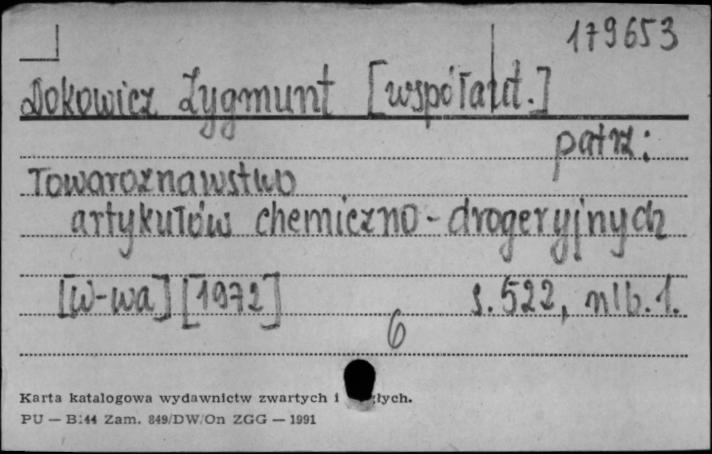 179653
Dokowicz Zygmunt [współaut.]
patrz:
Towaroznawstwo
artykułów chemiczno-drogeryjnych
[W-wa] [1972] s. 522, nlb. 1.
6
Karta katalogowa wydawnictw zwartych i
PU — B:44 Zam. 849/DW/On ZGG — 1991